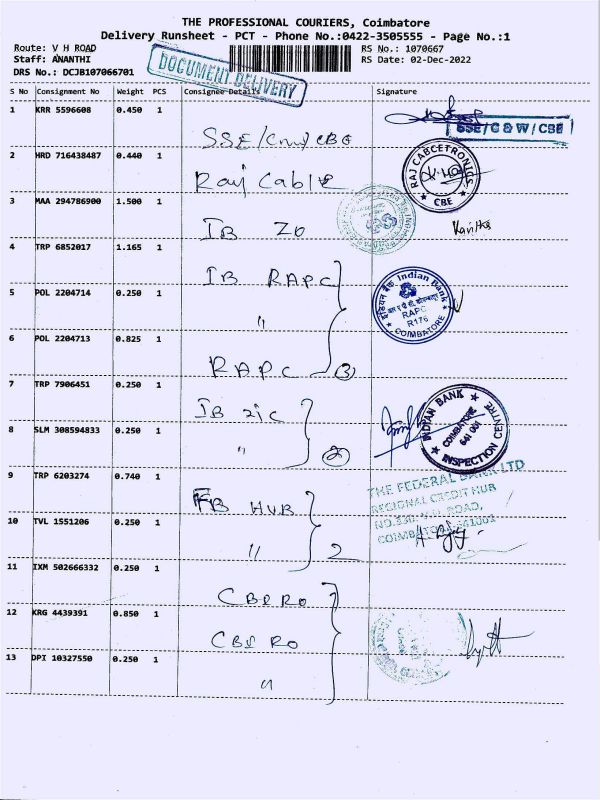 THE PROFESSIONAL COURIERS, Coimbatore
Delivery Runsheet - PCT - Phone No.:0422-3505555 - Page No.:1
Route: V H ROAD
RS No.: 1070667
Staff: ANANTHI
RS Date: 02-Dec-2022
DRS No.: DCJB107066701
DOCUMENT DELIVERY
S No Consignment No Weight PCS Consignee Details Signature
1 KRR 5596608 0.450 1
SSE/C & W/CBE
SSE/CnW/CBE
2 HRD 716438487 0.440 1
Raj Cable
RAJ CABCETRONICS
CBE
3 MAA 294786900 1.500 1
IB ZO
Kavitha
4 TRP 6852017 1.165 1
IB RAPC
5 POL 2204714 0.250 1
"
इंडियन बैंक Indian Bank
RAPC
R176
COIMBATORE
6 POL 2204713 0.825 1
RAPC 3
7 TRP 7906451 0.250 1
IB ZIC
INDIAN BANK
COIMBATORE
641 001
INSPECTION CENTRE
8 SLM 308594833 0.250 1
" 2
9 TRP 6203274 0.740 1
THE FEDERAL BANK LTD
REGIONAL CREDIT HUB
FB HUB
ROAD,
COIMBATORE 641001
10 TVL 1551206 0.250 1
" 2
11 IXM 502666332 0.250 1
CBE RO
12 KRG 4439391 0.850 1
CBE RO
13 DPI 10327550 0.250 1
"